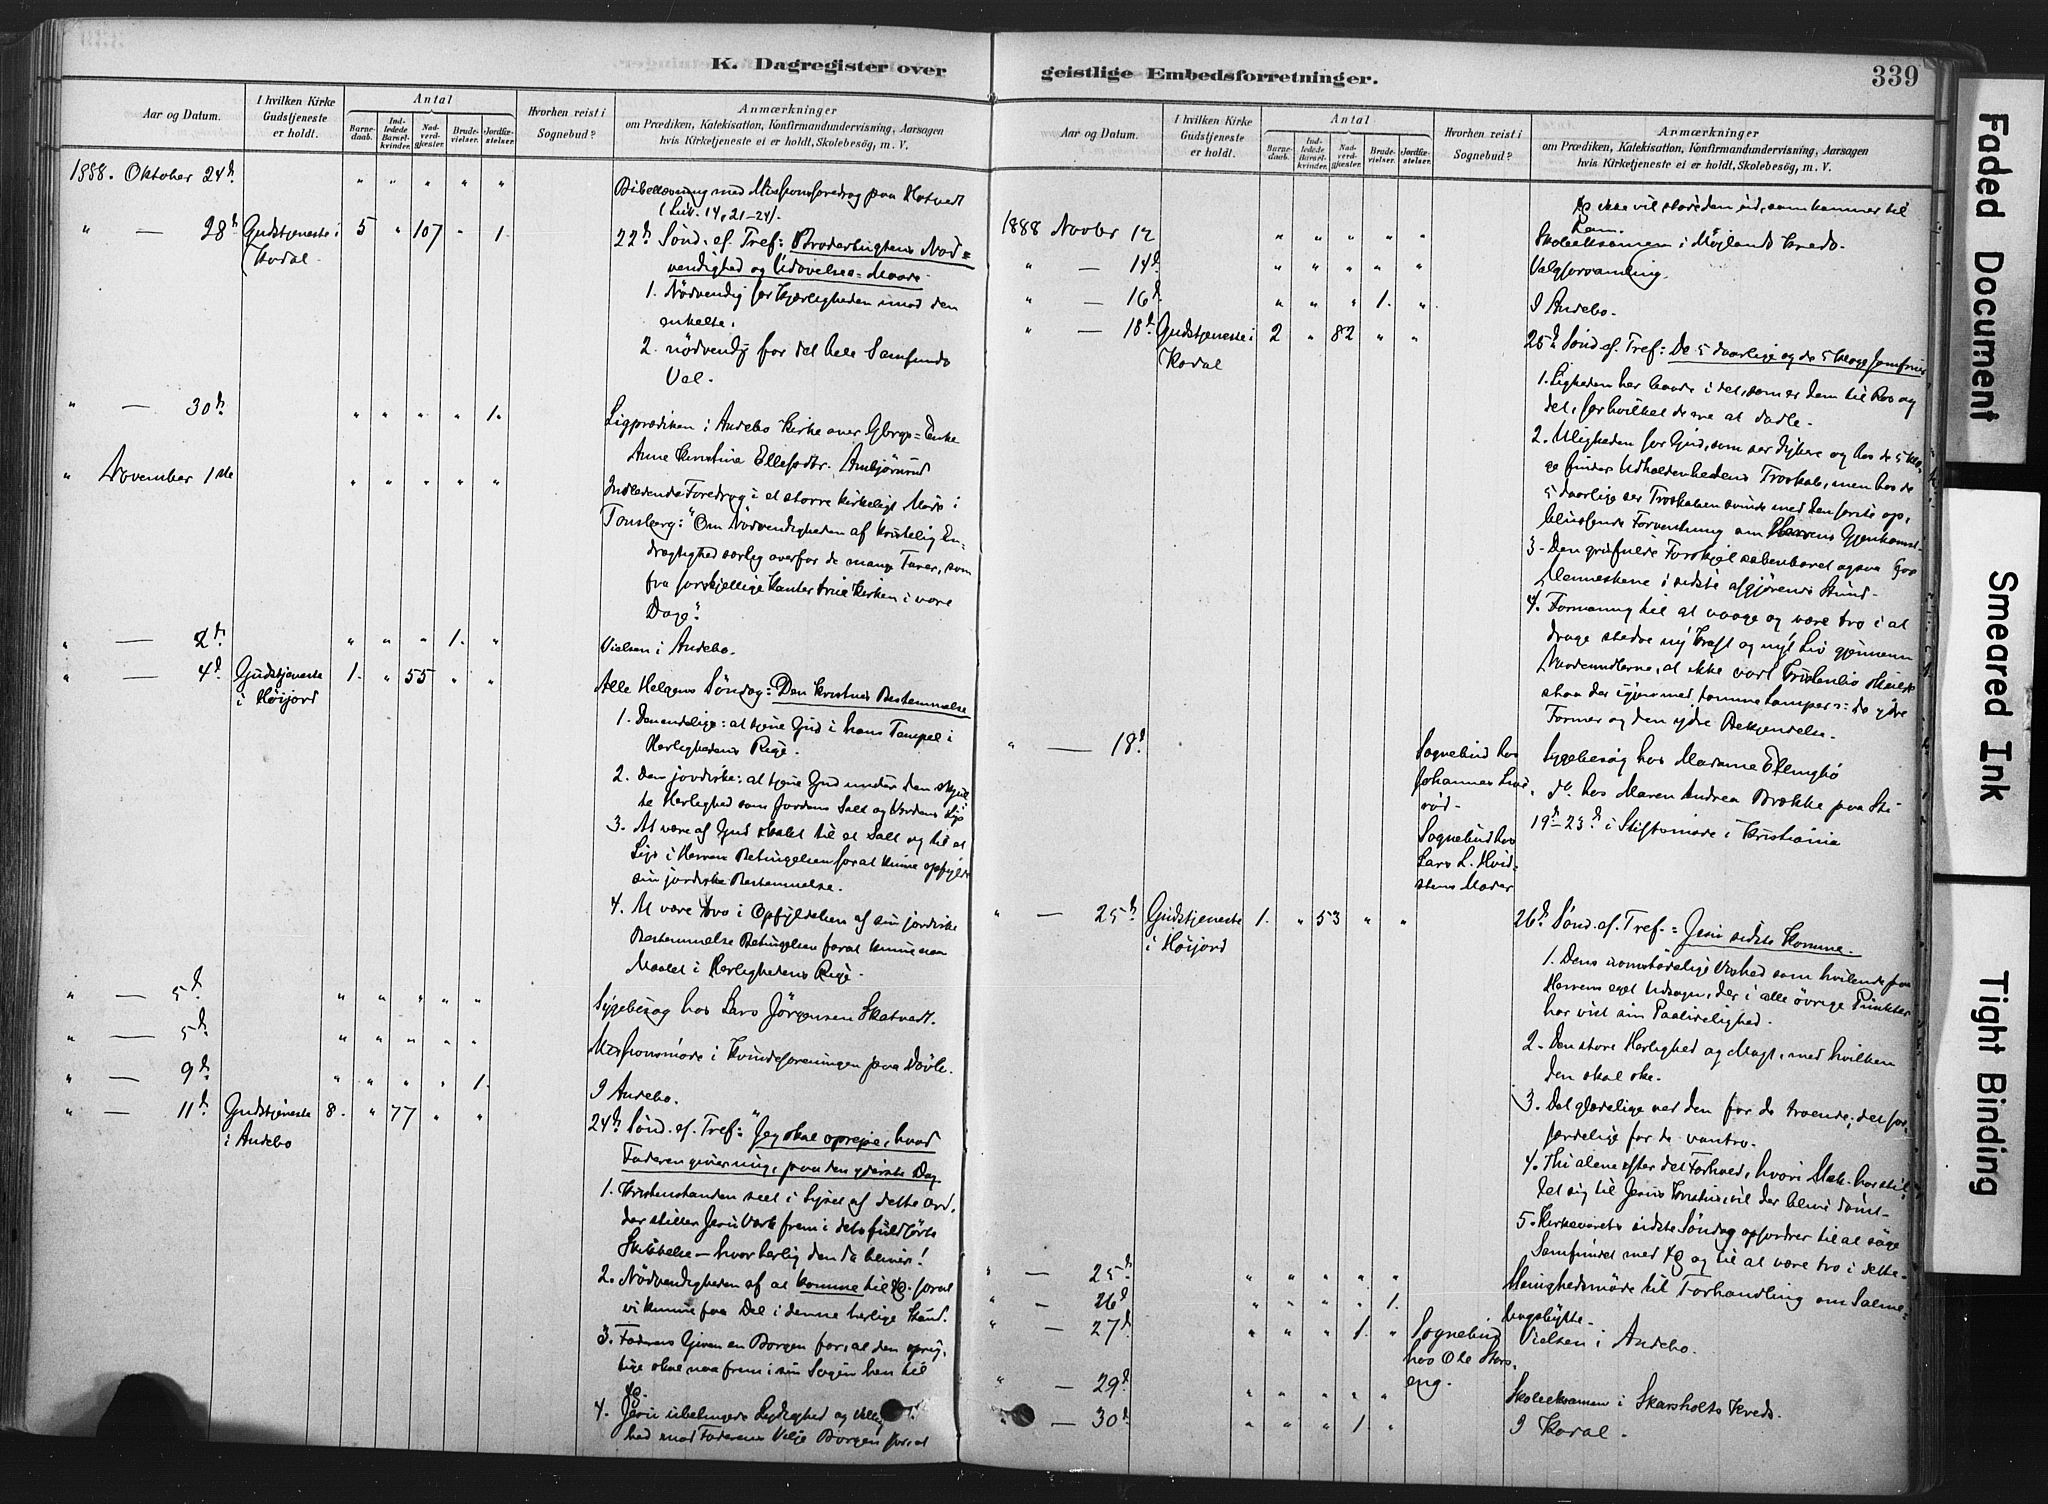 K. Dagregister over
Aar og Datum.
I hvilken Kirke Gudstjeneste er holdt.
Antal
Barnedaab.
Indledede Barselkvinder.
Nadverdgjæster.
Brudevielser.
Jordfæstelser.
Hvorhen reist i Sognebud?
Anmærkninger
om Prædiken, Katekisation, Konfirmandundervisning, Aarsagen
hvis Kirketjeneste ei er holdt, Skolebesög, m. V.
1888. Oktober 24d. " " " " " Bibellæsning med Missionsforedrag paa Hotvedt
(Luk. 14, 21-24).
" — 28d Gudstjeneste i Kodal. 5 " 107 " 1. 22d Sönd. ef. Tref: Broderligtens Nød=
vendighed og Udøvelses=Maade.
1. Nödvendig for Kjærligheden imod den
enkelte.
2. nödvendig for det hele Samfunds
Vel.
" — 30d. " " " " 1. Ligprædiken i Andebo Kirke over Gbrgs=Enke
Anne Kristine Ellefsdtr. Ambjörnrud
" November 1ste " " " " " Indledende Foredrag i et större kirkeligt Möde i
Tønsberg: "Om Nödvendigheden af kristelig En-
drægtighed særlig overfor de mange Farer, som
fra forskjellige Kanter true Kirken i vore
Dage".
" — 2d " " " 1. " Vielsen i Andebo.
" — 4d. Gudstjeneste i Höijord 1. " 55 " " Alle Helgens Söndag: Den Kristnes Bestemmelse
1. Den endelige: at tjene Gud i hans Tempel i
Herlighedens Rige.
2. Den jordiske: at tjene Gud under den skjul
te Herlighed som Jordens Salt og Verdens Lys
3. At være af Gud skabt til et Salt og til et
Lys i Herren Betingelsen for at kunne opfylde
sin jordiske Bestemmelse.
4. At være tro i Opfyldelsen af sin jordiske
Bestemmelse Betingelsen for at kunne naa
Maalet i Herlighedens Rige.
" — 5d. " " " " " Sygebesög hos Lars Jörgensen Skatvedt.
" — 5d. " " " " " Missionsmöde i Kvindeforeningen paa Dövle.
" — 9d. " " " " 1. I Andebo.
" — 11d. Gudstjeneste i Andebo 8. " 77 " " 24d Sönd. ef. Tref: "Jeg skal opreise, hvad
Faderen giver mig, paa den yderste Dag
1. Kristenstanden seet i Lyset af dette Ord,
der stiller Jesu Værk frem i dets fuldförte
Skikkelse — hvor herlig den da bliver!
2. Nödvendigheden af at komme til  for at
vi kunne faa Del i denne herlige Stand.
3. Faderens Given en Borgen for, at den oprig-
tige skal naa frem i sin Sögen hen til
4. Jesu ubetingede Lydighed og Villig
hed mod Faderens Vilje Borgen for, at
geistlige Embedsforretninger.
339
Aar og Datum.
I hvilken Kirke Gudstjeneste er holdt.
Antal
Barnedaab.
Indledede Barselkvinder.
Nadverdgjæster.
Brudevielser.
Jordfæstelser.
Hvorhen reist i Sognebud?
Anmærkninger
om Prædiken, Katekisation, Konfirmandundervisning, Aarsagen
hvis Kirketjeneste ei er holdt, Skolebesög, m. V.
ikke vil støde den ud, som kommer til
ham.
1888 Novbr 12 " " " " " Skoleeksamen i Möylands Kreds.
" — 14d. " " " " " Valgforsamling.
" — 16d. " " " 1. " I Andebo.
" — 18d. Gudstjeneste i Kodal 2 " 82 " " 25d Sönd. ef. Tref: De 5 daarlige og de 5 kloge Jomfruer
1. Ligheden her baade i det, som er dem til Ros og
det, for hvilket de ere at dadle.
2. Uligheden for Gud, som ser dybere og hos de 5 klo-
ge finder Udholdenhedens Troskab, men hos de
5 daarlige ser Troskaben svinde med den förste op-
blussende Forventning om Herrens Gjenkomst.
3. Den grufulde Forskjel aabenbaret ogsaa for
Menneskene i sidste afgjörende Stund.
4. Formaning til at vaage og være tro i at
drage stedse ny Kraft og nyt Liv gjennem
Naademidlerne, at ikke vort Kristenliv skal
staa der igjen med tomme Lamper: de ydre
Former og den ydre Bekjendelse.
" — 18d. Sognebud hos Johannes röd. Sygebesög hos Madame
Sognebud hos Lars L. Hvidstens Moder do. hos Maren Andrea Bække paa Sti
19d–23d i Stiftsmöde i Kristiania
" — 25d. Gudstjeneste i Höijord 1. " 53 " " 26d Sönd. ef. Tref.: Jesu sidste Komme.
1. Dens uomstödelige Vished som hvilende paa
Herrens eget Udsagn, der i alle övrige Punkter
har vist sin Paalidelighed.
2. Den store Herlighed og Magt, med hvilken
den skal ske.
3. Det glædelige ved den for de troende; det for-
færdelige for de vantro.
4. Thi alene efter det Forhold, hvori Msk. har stil-
let sig til Jesus Kristus, vil der blive dömt.
5. Kirkeaarets sidste Söndag opfordrer til at söge
Samfundet med  og til at være tro i dette.
" — 25d. " " " " " Menighedsmöde til Forhandling om Salme-
bogsbytte.
" — 26d " " " 1. " Vielsen i Andebo.
" — 27d. " " 1. " Sognebud hos Ole Stors eng.
" — 29d " " " " " Skoleeksamen i Skarsholts Kreds.
" — 30d. " " " 1. " I Kodal.
Faded Document
Smeared Ink
Tight Binding